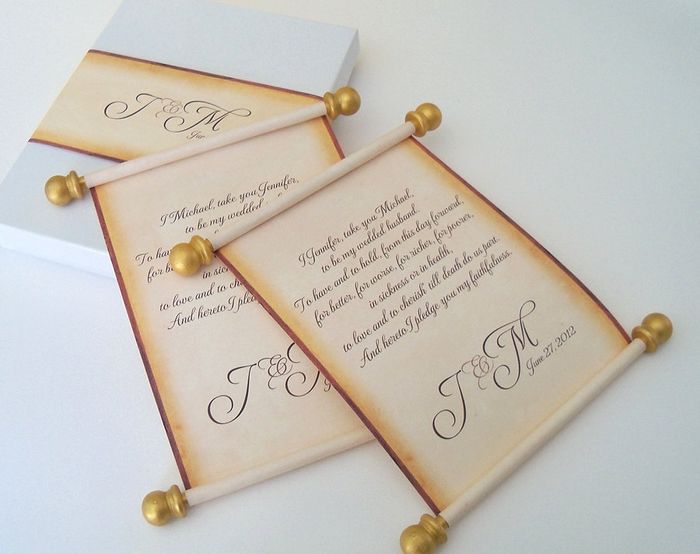 J & M
Jun
I Michael, take you Jennifer,
to be my wedded
To hav
for b
in sick
to love and to che
And hereto I ple
J & M
I Jennifer, take you Michael,
to be my wedded husband.
To have and to hold, from this day forward,
for better, for worse, for richer, for poorer,
in sickness or in health,
to love and to cherish till death do us part.
And hereto I pledge you my faithfulness.
J & M
June 27, 2012